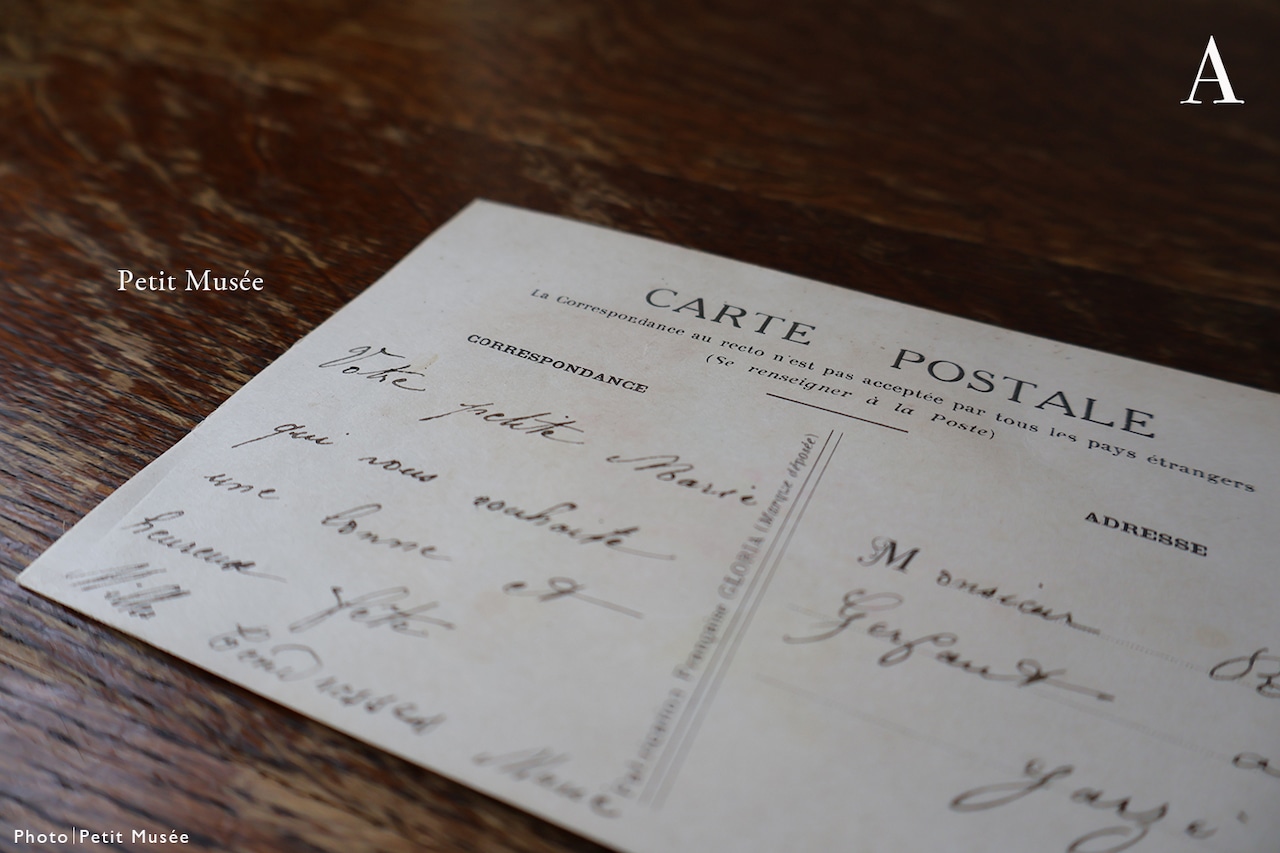 A
Petit Musée
CARTE POSTALE
La Correspondance au recto n'est pas acceptée par tous les pays étrangers
(Se renseigner à la Poste)
CORRESPONDANCE
Votre petite Marie
qui vous souhaite
une bonne et
heureuse fête
Mille tendresses
Marie
Fabrication Française GLORIA (Marque déposée)
ADRESSE
Monsieur
Gerfaut
à
Jarzé
Photo|Petit Musée